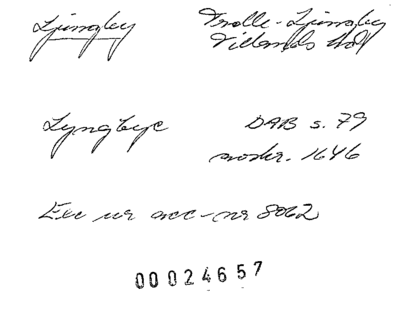 Ljungby Trolle-Ljungby
Villands hd
Lyngbye DAB s. 79
avskr. 1646
Exc ur acc-nr 8062
00024657